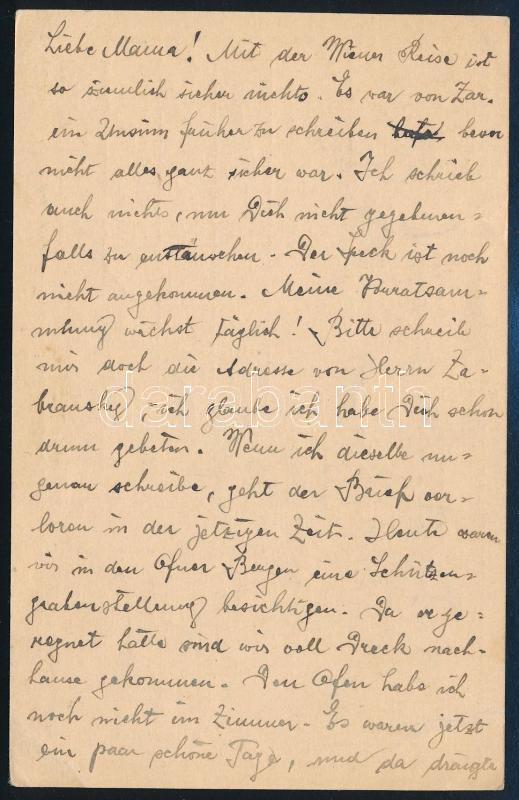 Liebe Mama! Mit der Wiener Reise ist
so ziemlich sicher nichts. Es war von Zar.
ein Unsinn früher zu schreiben bevor
nicht alles ganz sicher war. Ich schrieb
auch nichts, um Dich nicht gegebenen=
falls zu enttäuschen. Der Speck ist noch
nicht angekommen. Meine Vorratsam=
mlung wächst täglich! Bitte schreib
mir doch die Adresse von Herrn Za=
bransky, ich glaube ich habe Dich schon
darabanth
drum gebeten. Wenn ich dieselbe un=
genau schreibe, geht der Brief ver=
loren in der jetzigen Zeit. Heute waren
wir in den Ofner Bergen eine Schützen=
grabenstellung besichtigen. Da es ge=
regnet hatte sind wir voll Dreck nach=
hause gekommen. Den Ofen habe ich
noch nicht im Zimmer. Es waren jetzt
ein paar schöne Tage, und da drängte